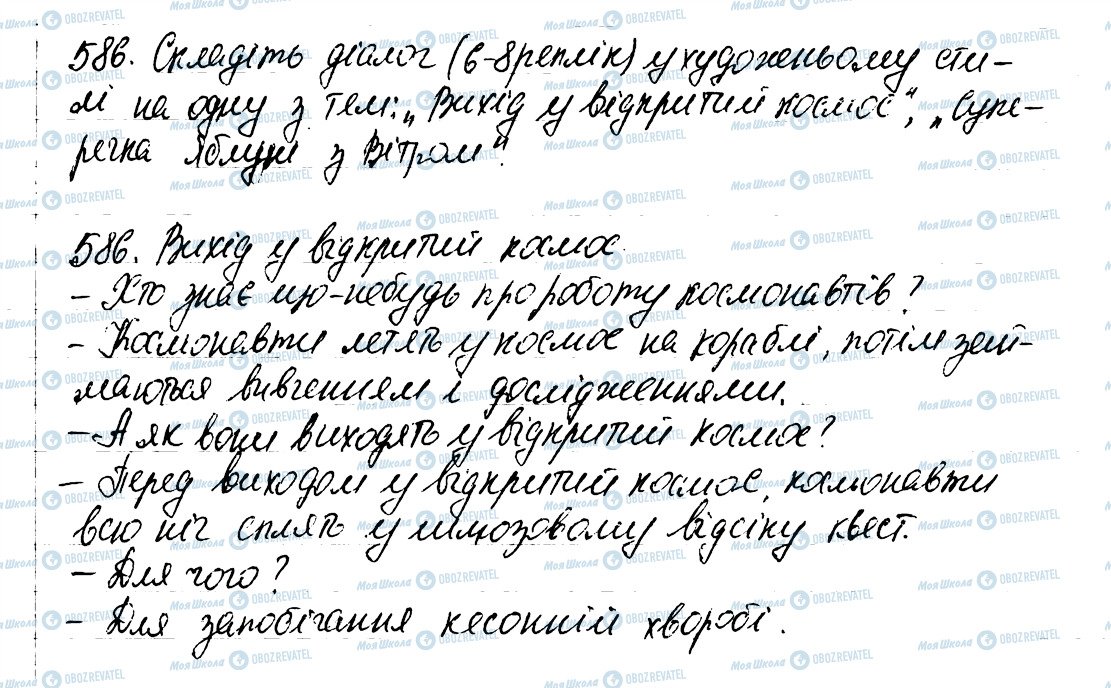 586. Складіть діалог (6-8 реплік) у художньому сти-
лі на одну з тем: „Вихід у відкритий космос“, „Супе-
речка Яблуні з Вітром“.
586. Вихід у відкритий космос.
- Хто знає що-небудь про роботу космонавтів?
- Космонавти летять у космос на кораблі, потім зай-
маються вивченням і дослідженнями.
- А як вони виходять у відкритий космос?
- Перед виходом у відкритий космос, космонавти
всю ніч сплять у шлюзовому відсіку квест.
- Для чого?
- Для запобігання кесонній хворобі.
Моя Школа OBOZREVATEL